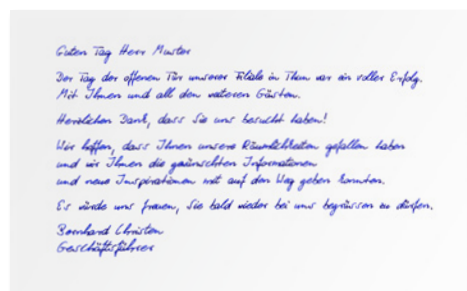 Guten Tag Herr Muster
Der Tag der offenen Tür unserer Filiale in Thun war ein voller Erfolg.
Mit Ihnen und all den weiteren Gästen.
Herzlichen Dank, dass Sie uns besucht haben!
Wir hoffen, dass Ihnen unsere Räumlichkeiten gefallen haben
und wir Ihnen die gewünschten Informationen
und neue Inspirationen mit auf den Weg geben konnten.
Es würde uns freuen, Sie bald wieder bei uns begrüssen zu dürfen.
Bernhard Christen
Geschäftsführer